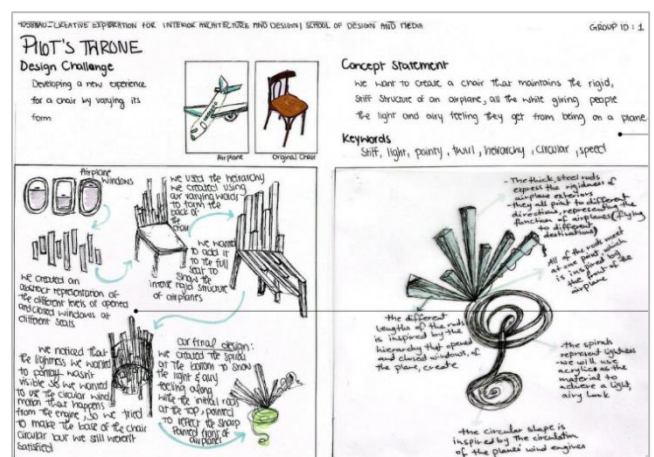 CREATIVE EXPLORATION FOR INTERIOR ARCHITECTURE AND DESIGN | SCHOOL OF DESIGN AND MEDIA
GROUP ID : 1
PILOT'S THRONE
Design Challenge
Developing a new experience
for a chair by varying its
form
Airplane
Original Chair
Concept Statement
We want to create a chair that maintains the rigid,
stiff structure of an airplane, all the while giving people
the light and airy feeling they get from being on a plane
Keywords
Stiff, light, pointy, twirl, heirarchy, circular, speed
Airplane
windows
we created an
abstract representation of
the different levels of opened
and closed windows at
different seats
we used the heirarchy
we created using
our varying
to form the
back of
the
chair
we wanted
to add it
to the full
seat to
show the
rigid structure
of airplanes
we noticed that
the lightness we wanted
to portray wasn't
visible so we wanted
to use the circular wind
motion that happens
from the engine, so we tried
to make the base of the chair
circular but we still weren't
satisfied
our final design:
we created the spiral
at the bottom to show
the light & airy
feeling along
with the initial rods
at the top, pointed
to reflect the sharp
pointed front of
airplane
- The thick, steel rods
express the rigidness of
airplane exteriors
- they all point to different
directions, representing the
function of airplanes (flying
to different
destinations)
All of the rods meet
at one point which
is inspired by
the front of the
airplane
the different
lengths of the rods
is inspired by the
hierarchy that opened
and closed windows, of
the plane, create
- the spirals
represent lightness
- we will use
acrylic as the
material to
achieve a light,
airy look
the circular shape is
inspired by the circulation
of the planes wind engines